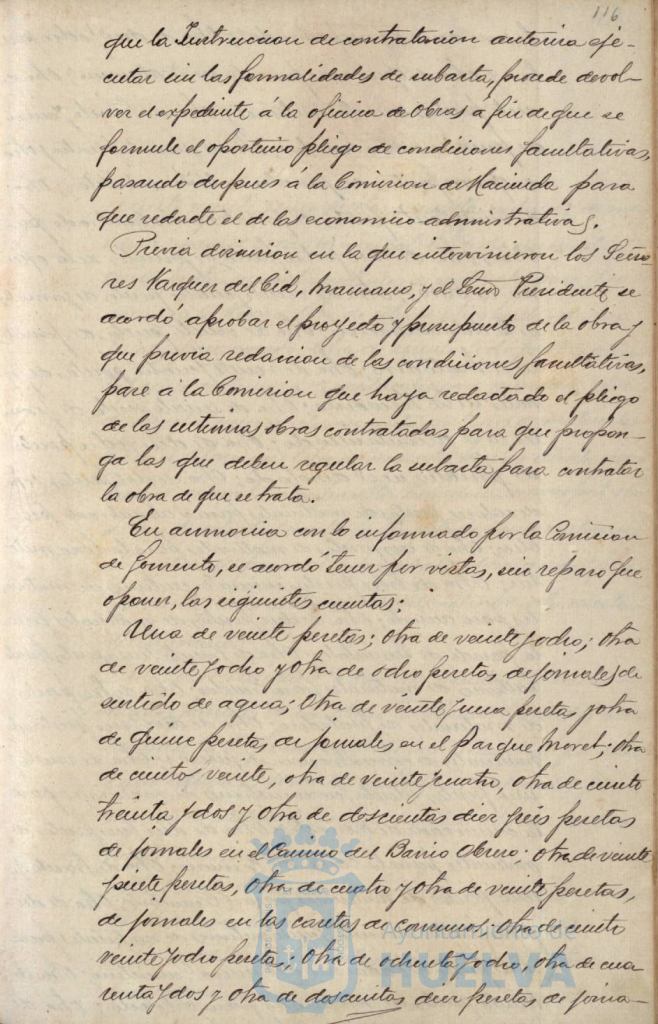 116
que la Instruccion de contratacion autorisa eje-
cutar sin las formalidades de subasta, procede devol-
ver el expediente á la oficina de Obras á fin de que se
formule el oportuno pliego de condiciones facultativas,
pasando despues á la Comision de Hacienda para
que redacte el de las economico administrativas.
Previa discusion en la que intervinieron los Seño-
res Vazquez del Cid, Manzano, y el Señor Presidente se
acordó aprobar el proyecto y presupuesto de la obra y
que previa redaccion de las condiciones facultativas,
pase á la Comision que haya redactado el pliego
de las ultimas obras contratadas para que propon-
ga las que deben regular la subasta para contratar
la obra de que se trata.
En armonia con lo informado por la Comision
de Fomento, se acordó tener por vistas, sin reparo que
oponer, las siguientes cuentas:
Una de veinte pesetas; otra de veinte y ocho; otra
de veinte y ocho y otra de ocho pesetas de jornales de
surtido de agua; Otra de veinte y una pesetas y otra
de quince pesetas, de jornales en el Parque Moret; otra
de ciento veinte, otra de veinte y cuatro, otra de ciento
treinta y dos y otra de doscientas diez y seis pesetas
de jornales en el Camino del Barrio Obrero; otra de veinte
y siete pesetas, otra de cuatro y otra de veinte pesetas,
de jornales en las casetas de consumos; otra de ciento
veinte y ocho pesetas; otra de ochenta y ocho, otra de cua
renta y dos y otra de doscientas diez pesetas de jorna-
Ayuntamiento de
HUELVA